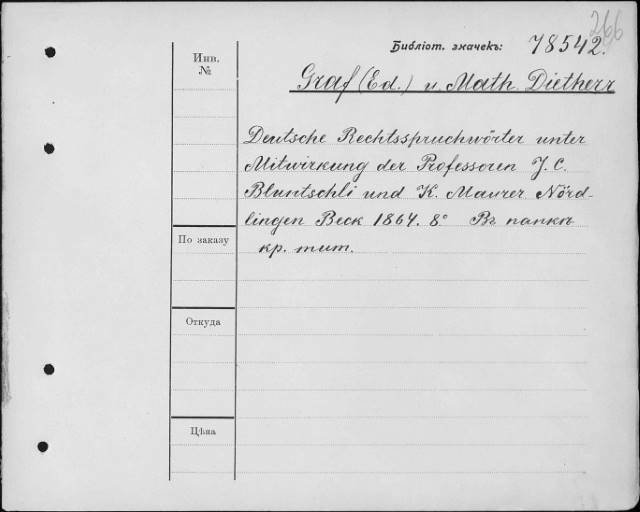 266
Библіот. значекъ: 78542.
Инв.
№
Graf (Ed.) u. Math. Dietherr
Deutsche Rechtsspruchwörter unter
Mitwirkung der Professoren J. C.
Bluntschli und K. Maurer Nörd-
lingen Beck 1864. 8° Въ папкѣ
кр. тит.
По заказу
Откуда
Цѣна